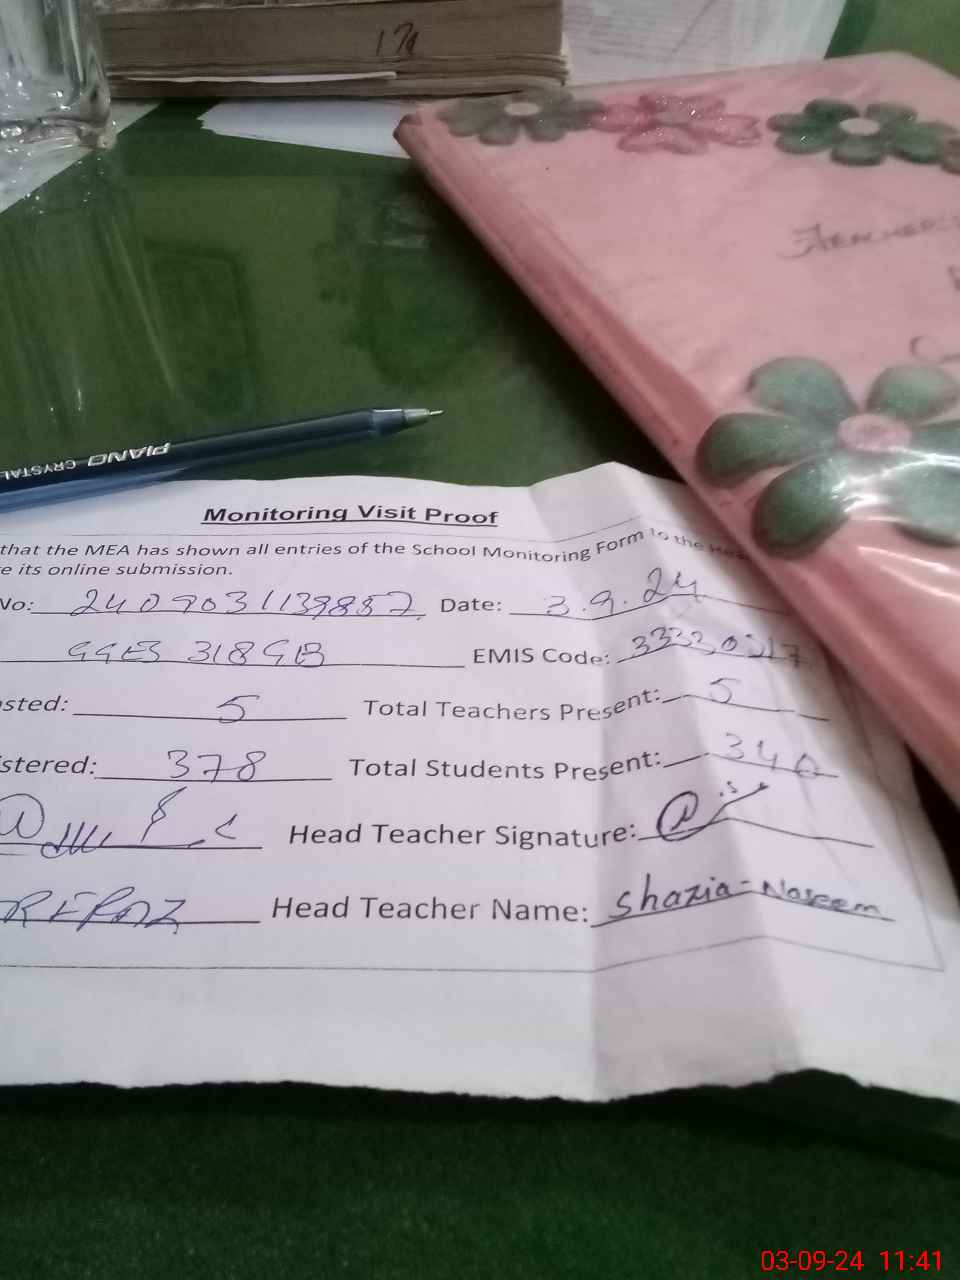 179
TEACHER'S
PIANO CRYSTAL
Monitoring Visit Proof
that the MEA has shown all entries of the School Monitoring Form to the Hea
e its online submission.
No: 2409031139887 Date: 3.9.24
GGES 318 GB EMIS Code: 33330317
sted: 5 Total Teachers Present: 5
stered: 378 Total Students Present: 340
Head Teacher Signature:
Head Teacher Name: Shazia-Naseem
03-09-24 11:41